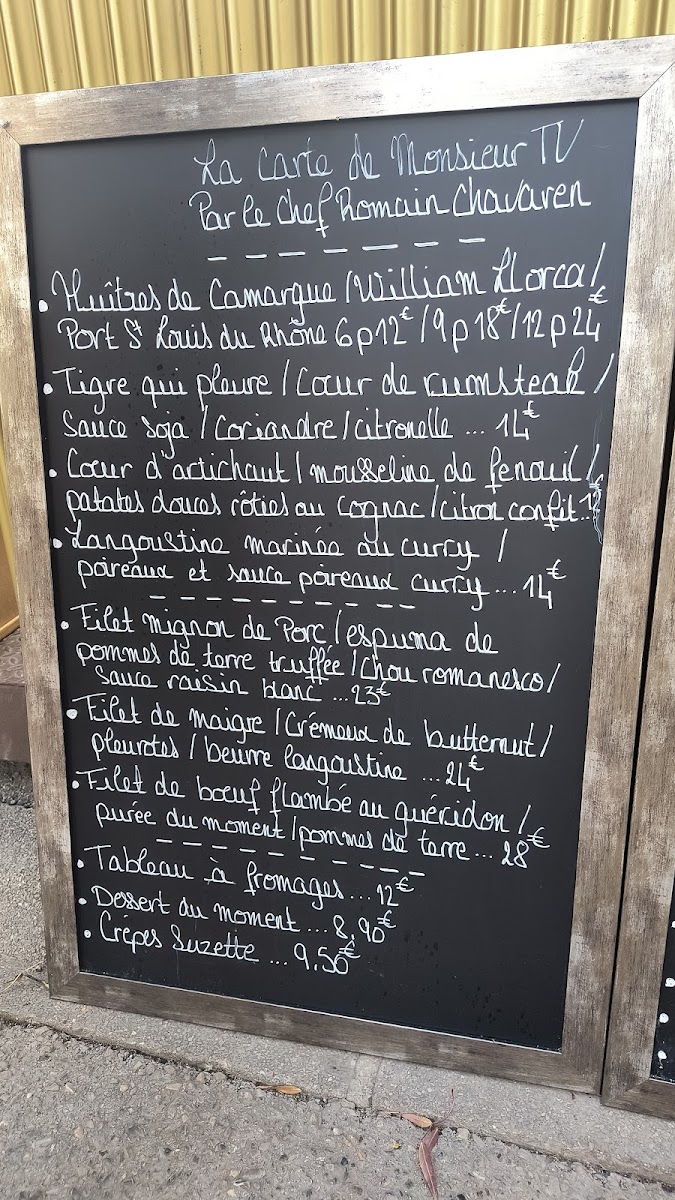 La Carte de Monsieur TV
Par le Chef Romain Chavaren
• Huîtres de Camargue / William Llorca /
Port St Louis du Rhône 6p 12€ / 9p 18€ / 12p 24€
• Tigre qui pleure / Cœur de rumsteak /
Sauce soja / Coriandre / citronelle ... 14€
• Cœur d'artichaut / mousseline de fenouil /
patates douces rôties au Cognac / citron confit..
• Langoustine marinée au curry /
poireaux et sauce poireaux curry ... 14€
• Filet mignon de Porc / espuma de
pommes de terre truffée / Chou romanesco /
Sauce raisin blanc ... 23€
• Filet de maigre / Crémeux de butternut /
pleurotes / beurre langoustine ... 24€
• Filet de bœuf flambé au guéridon /
purée du moment / pommes de terre ... 28€
• Tableau à fromages ... 12€
• Dessert du moment ... 8,90€
• Crêpes Suzette ... 9,50€